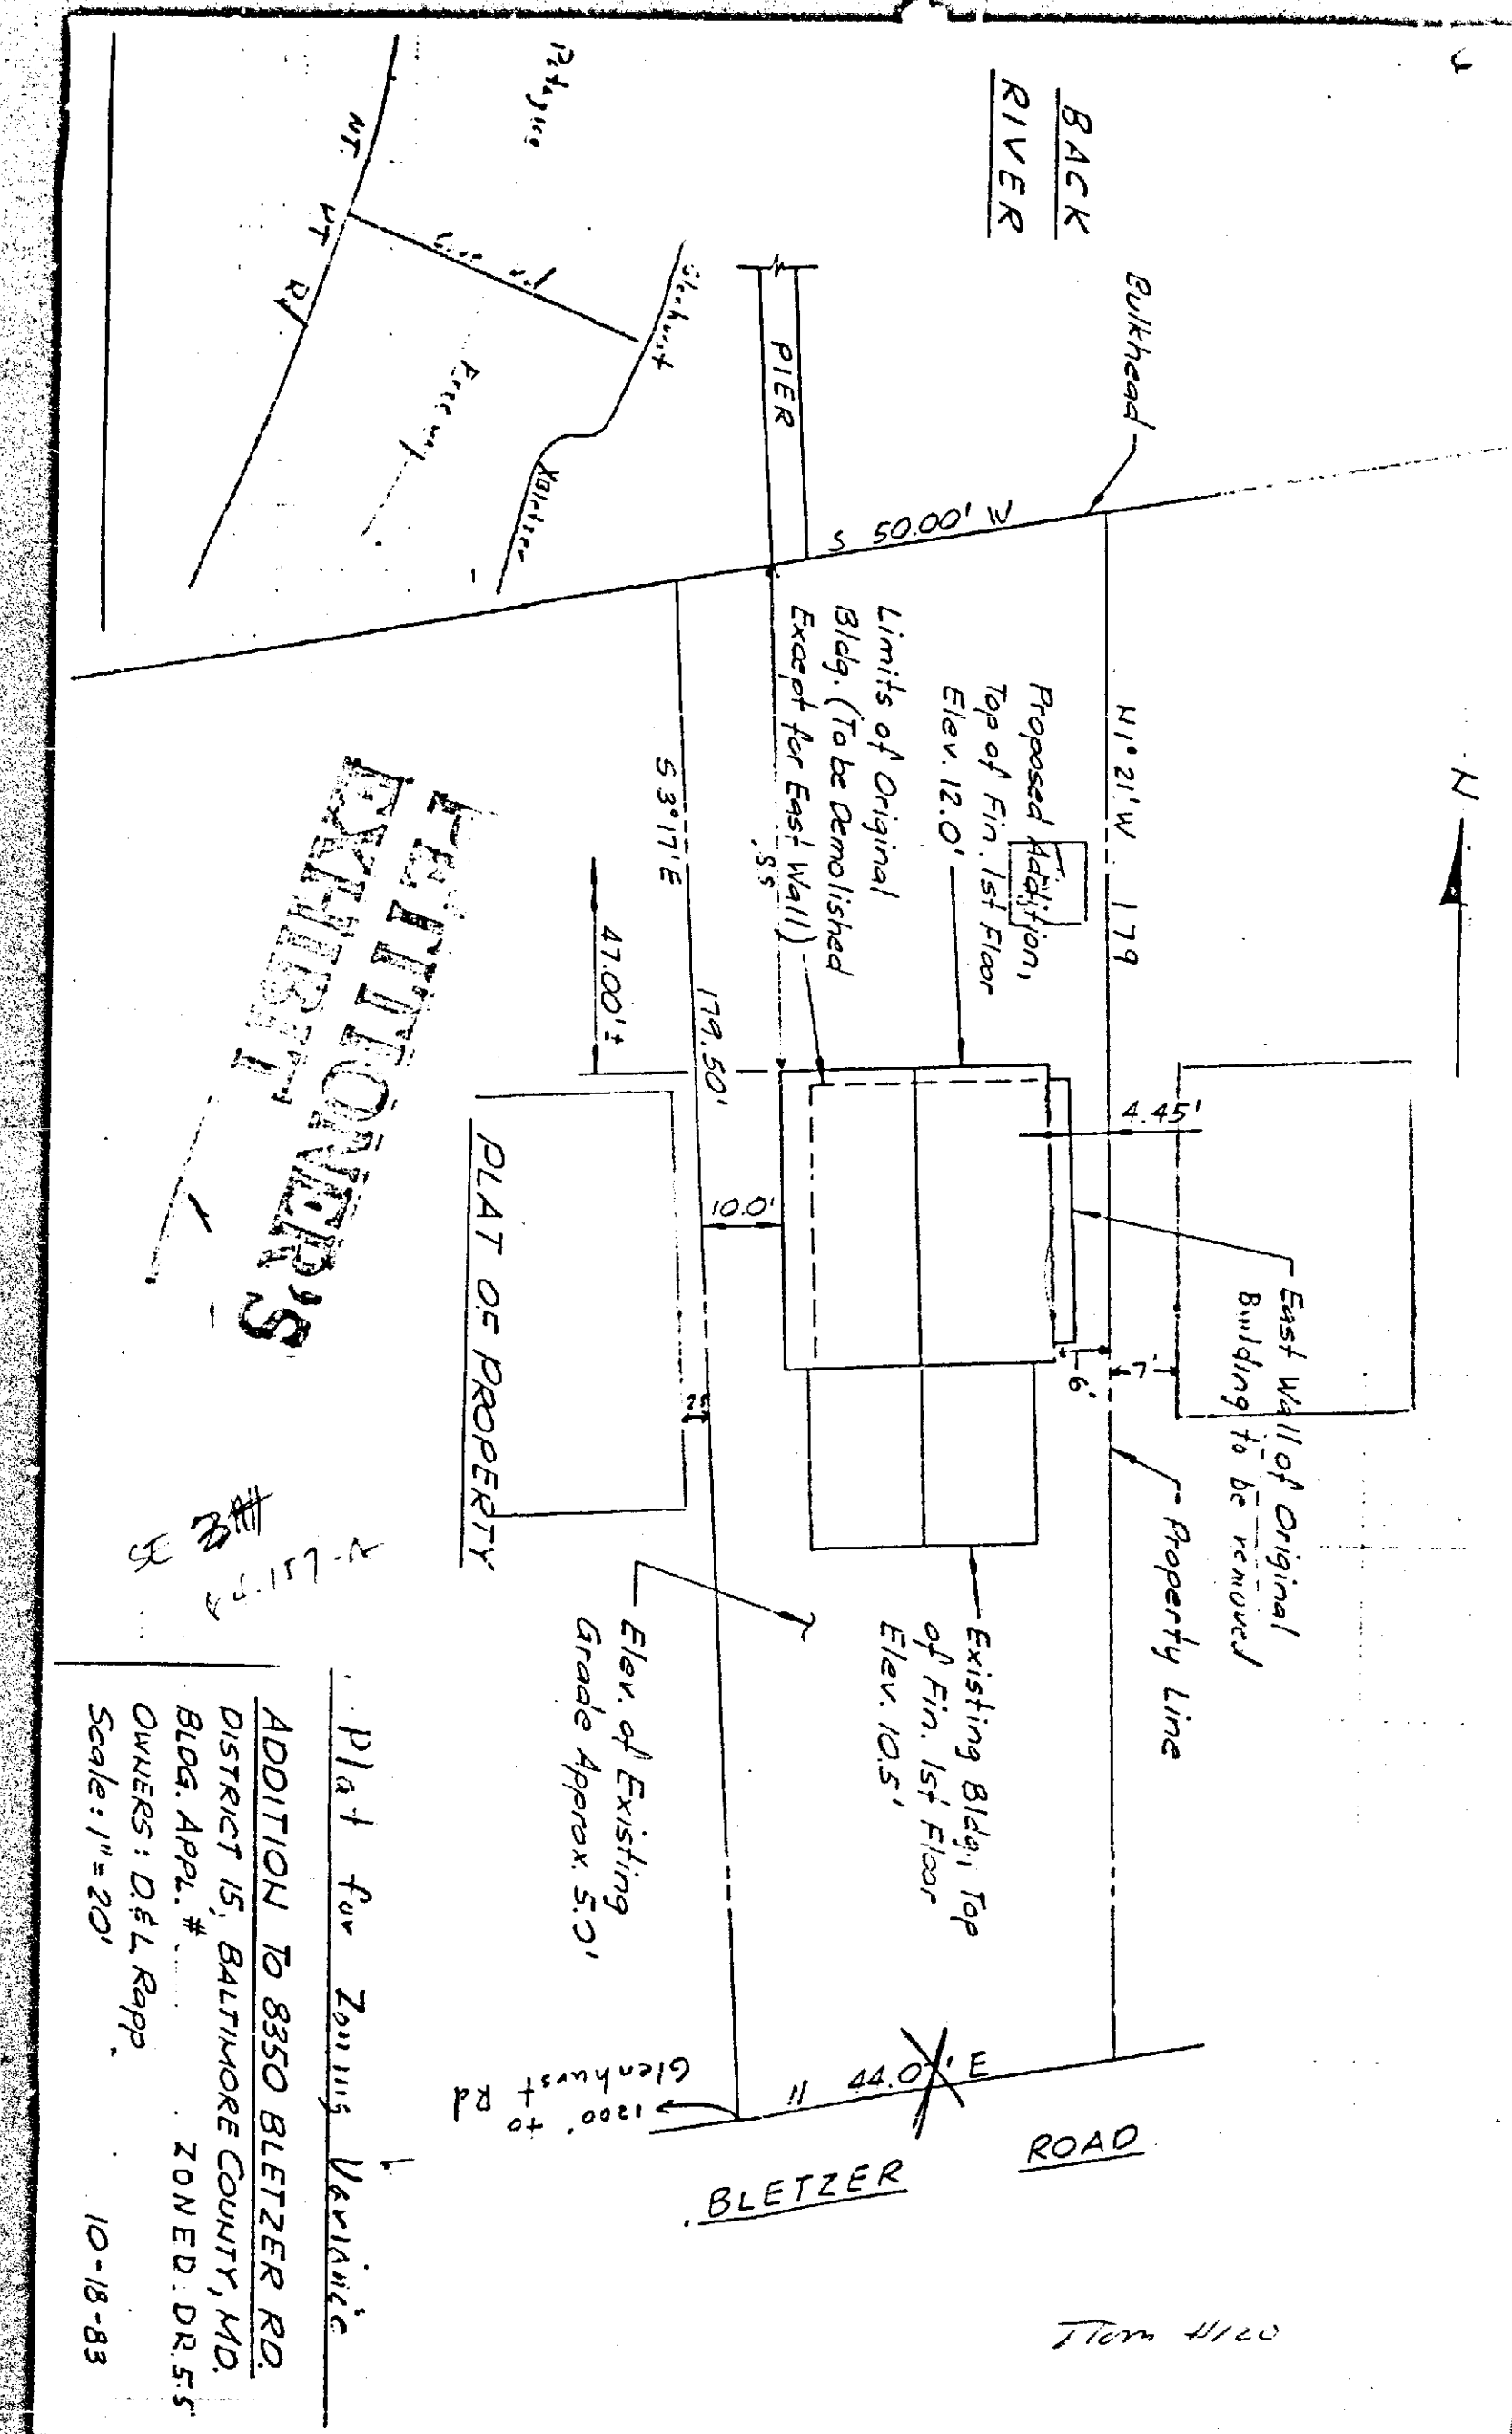 BACK
RIVER
Bulkhead
N
PIER
S 50.00' W
N1° 21' W 179
Proposed Addition,
Top of Fin. 1st Floor
Elev. 12.0'
Limits of Original
Bldg. (To be Demolished
Except for East Wall)
S 3° 17' E
179.50'
47.00'±
4.45'
10.0'
6'
7'
East Wall of Original
Building to be removed
Property Line
Existing Bldg, Top
of Fin. 1st Floor
Elev. 10.5'
Elev. of Existing
Grade Approx. 5.0'
PLAT OF PROPERTY
44.0
' E
1200' to
Glenhurst Rd
BLETZER
ROAD
Glenhurst
Bletzer
PETITIONER'S
EXHIBIT
SE
Plat for Zoning Variance
ADDITION TO 8350 BLETZER RD.
DISTRICT 15, BALTIMORE COUNTY, MD.
BLDG. APPL. # ZONED: DR.5.5
OWNERS: D.& L. Rapp
Scale: 1" = 20' 10-18-83